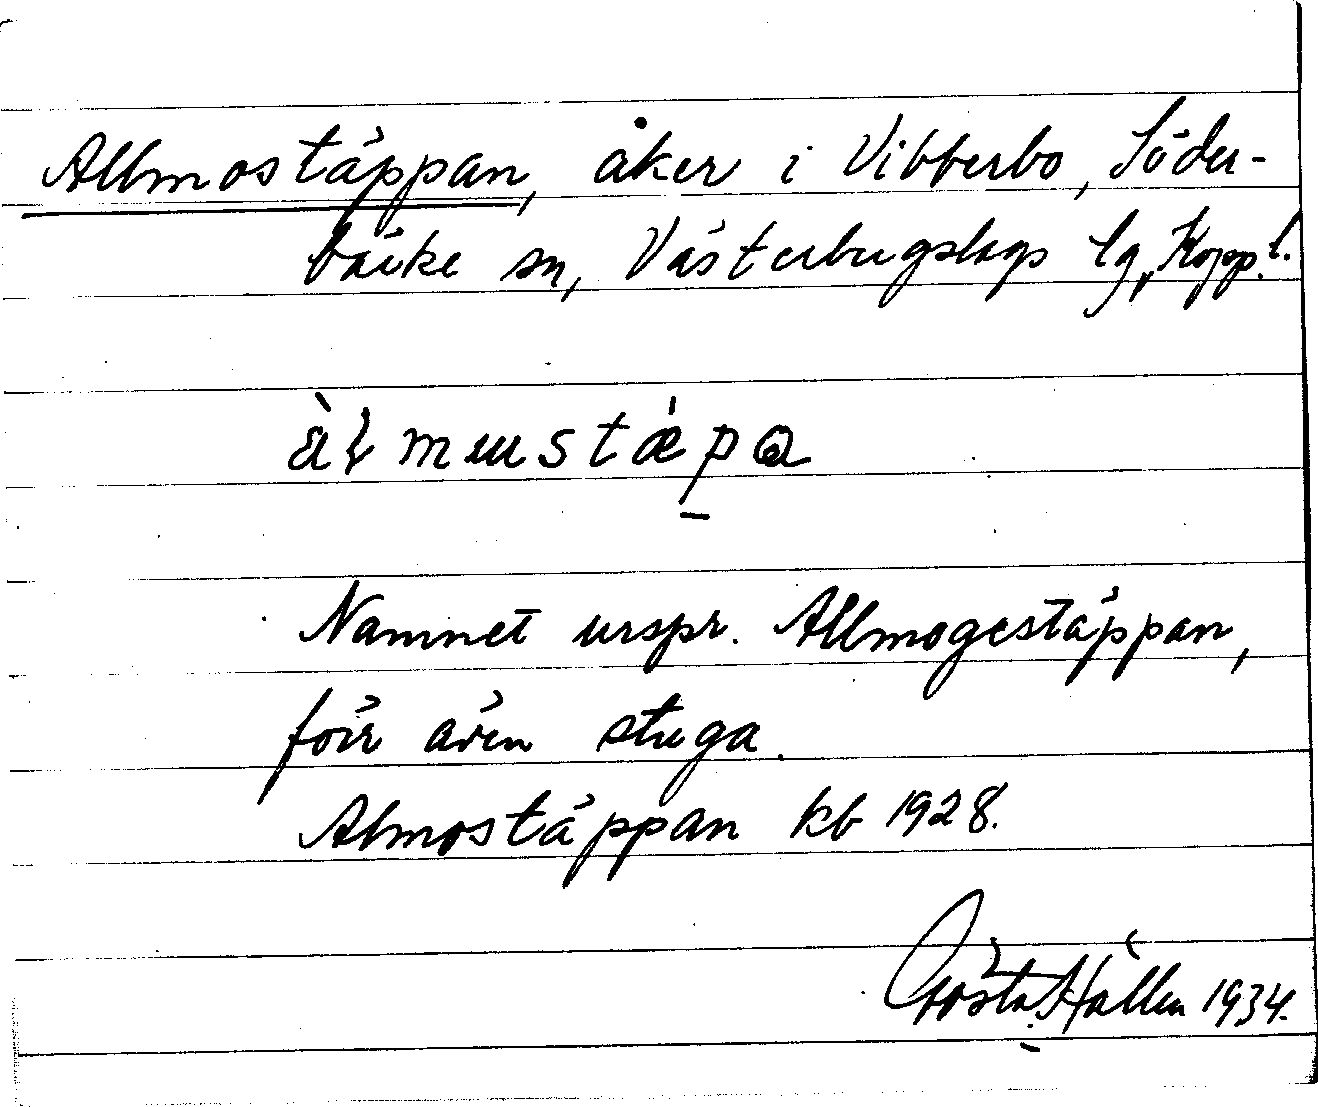 Allmostäppan, åker i Vibberbo, Söder-
bärke sn, Västerbergslags lg, Kopp. l.
àłmustǽpa
Namnet urspr. Allmogestäppan,
förr även stuga.
Almostäppan kb 1928.
Gösta Hallen 1934.